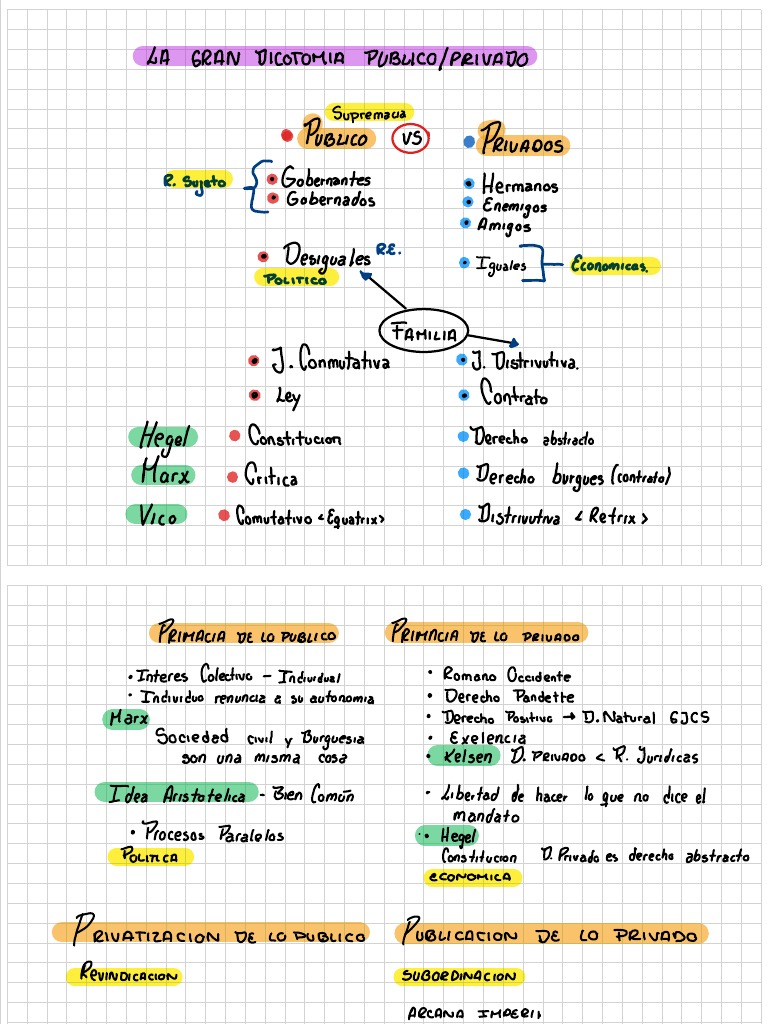 LA GRAN DICOTOMIA PUBLICO/PRIVADO
Supremacia
PUBLICO VS PRIVADOS
R. Sujeto
Gobernantes
Gobernados
Hermanos
Enemigos
Amigos
Desiguales R.E.
POLITICO
Iguales Economicas.
FAMILIA
J. Conmutativa J. Distrivutiva.
Ley Contrato
Hegel Constitucion Derecho abstracto
Marx Critica Derecho burgues (contrato)
Vico Comutativo <Equatrix> Distrivutiva < Retrix >
PRIMACIA DE LO PUBLICO
Interes Colectivo - Individual
Individuo renuncia a su autonomia
Marx
Sociedad civil y Burguesia
son una misma cosa
Idea Aristotelica - Bien Común
Procesos Paralelos
POLITICA
PRIMACIA DE LO PRIVADO
Romano Occidente
Derecho Pandette
Derecho Positivo → D. Natural GJCS
Exelencia
Kelsen D. PRIVADO < R. Juridicas
Libertad de hacer lo que no dice el
mandato
Hegel
Constitucion D. Privado es derecho abstracto
economica
PRIVATIZACION DE LO PUBLICO
REVINDICACION
PUBLICACION DE LO PRIVADO
SUBORDINACION
ARCANA IMPERII